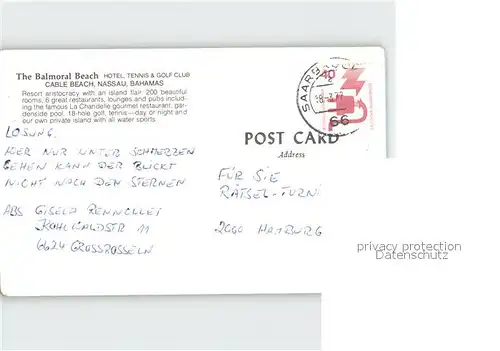 The Balmoral Beach HOTEL, TENNIS & GOLF CLUB
CABLE BEACH, NASSAU, BAHAMAS
Resort aristocracy with an island flair. 200 beautiful
rooms, 6 great restaurants, lounges and pubs includ-
ing the famous La Chandelle gourmet restaurant, gar-
denside pool. 18-hole golf, tennis—day or night and
our own private island with all water sports.
POST CARD
Address
40
66
LÖSUNG.
WER NUR UNTER SCHMERZEN
GEHEN KANN DER BLICKT
NICHT NACH DEN STERNEN
ABS GISELA RENNOLLET
KOHLWALDSTR 11
6624 GROSSROSSELN
FÜR SIE
RÄTSEL-TURNI
2000 HAMBURG
privacy protection
Datenschutz